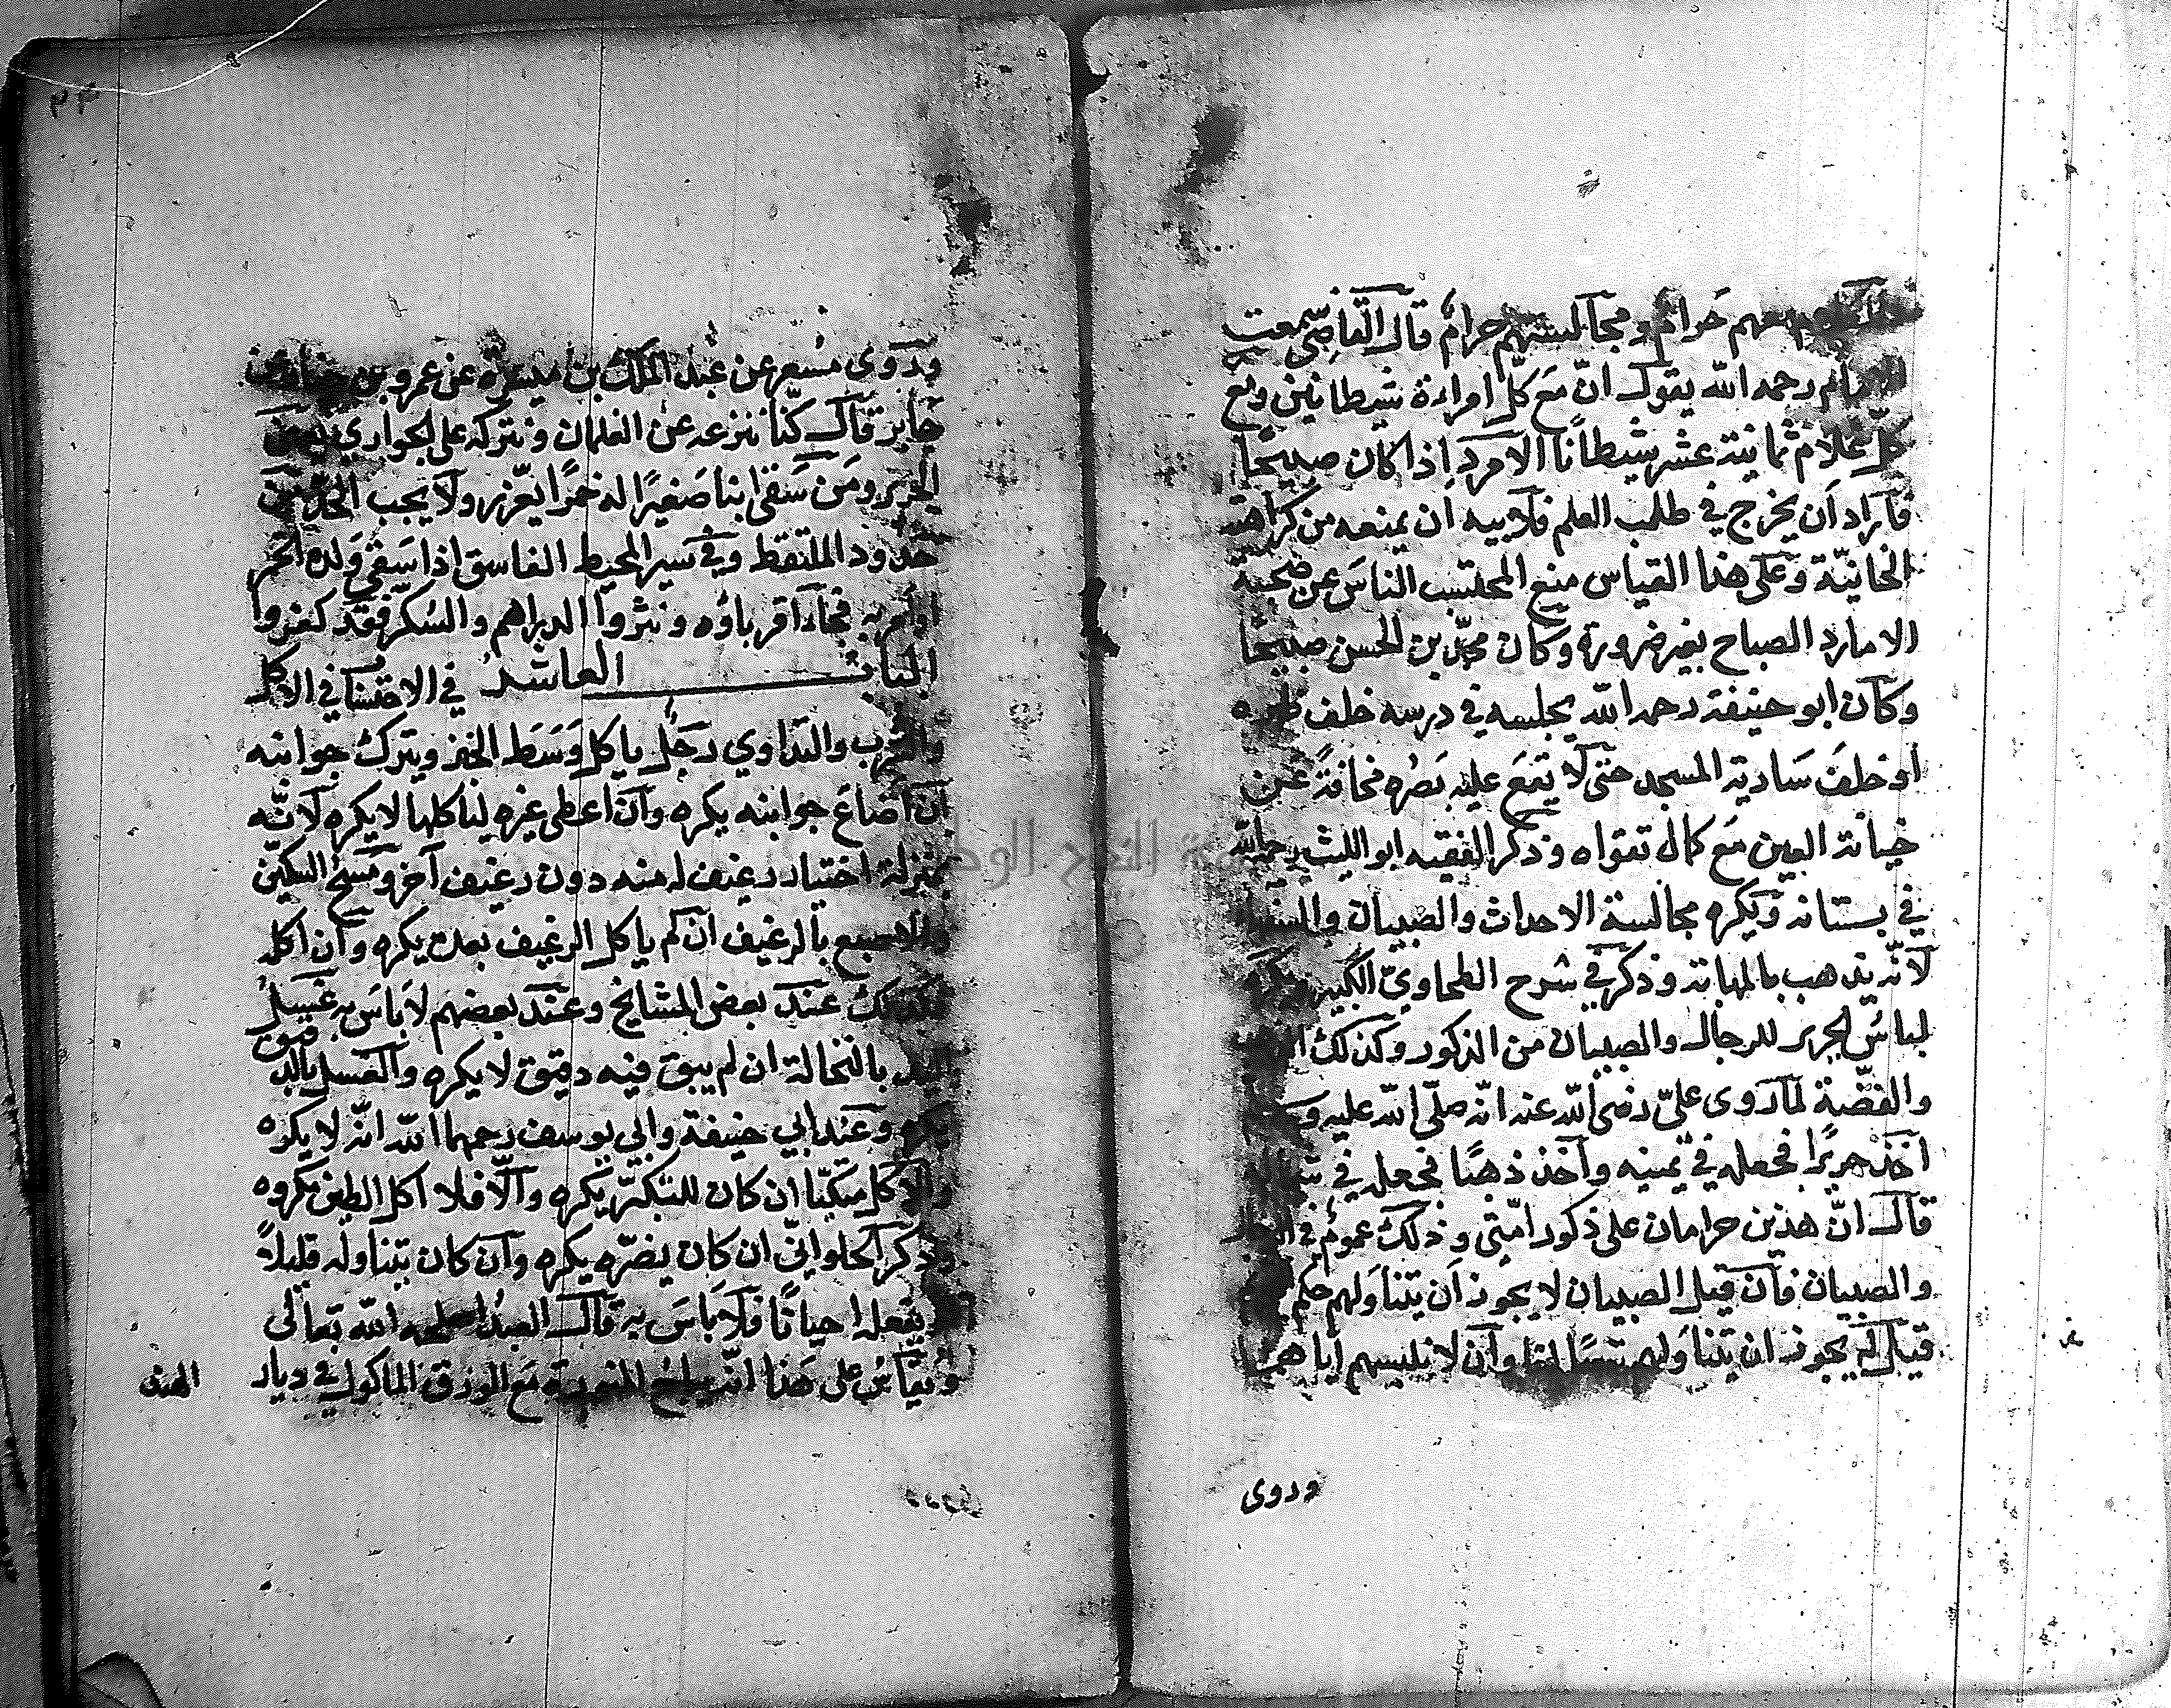 معهم حرام ومجالستهم حرام قال القاضي سمعت
الامام رحمه الله يقول ان مع كل امراءة شيطانين ومع
كل غلام ثمانية عشر شيطانا الامرد اذا كان صبيحا
فاراد ان يخرج في طلب العلم فلابيه ان يمنعه من كراهته
الخانيّة وعلى هذا القياس منع المحتسب الناس عن صحبة
الامارد الصباح بغير ضرورة وكان محمد بن الحسن صبيحا
وكان ابو حنيفة رحمه الله يجلسه في درسه خلف ظهره
او خلف سارية المسجد حتى لا يقع عليه بصره مخافة عن
خيانة العين مع كمال تقواه وذكر الفقيه ابو الليث رحمه الله
في بستانه ويكره مجالسة الاحداث والصبيان
لانه يذهب بالمهابة وذكر في شرح الطحاوي الكبير ويكره
لباس الحرير للرجال والصبيان من الذكور وكذلك
والفضّة لما روى علىّ رضى الله عنه انّه صلّى الله عليه
اخذ حريرا فجعله في يمينه واخذ ذهبا فجعله في
قال انّ هذين حرامان على ذكور امّتى وذلك عموم في
والصبيان فان قيل الصبيان لا يجوز ان يتناولهم حكم
قيل له يجوز ان يتناولهم وان لا نلبسهم اياهما
وروى
٢٣
وروى مسعر عن عبد الملك بن ميسرة عن عمرو بن دينار عن
جابر قال كنّا ننزعه عن الغلمان ونتركه على الجواري
الحرير ومن سقى ابنا صغيرا له خمرا يعزر ولا يجب الحد من
حدود الملتقط وفي سير المحيط الفاسق اذا سقى ولده الخمر
فجاء اقرباؤه ونثروا الدراهم والسكر فقد كفروا
الباب العاشر في الاحتساب في الاكل
والشرب والتداوي رجل ياكل وسط الخبز ويترك جوانبه
ان اضاع جوانبه يكره وان اعطى غيره لياكلها لا يكره لانّه
بمنزلة اختيار رغيف له منه دون رغيف آخر ومسح السكين
والاصبع بالرغيف ان لم ياكل الرغيف بعده يكره وان اكله
فكذلك عند بعض المشايخ وعند بعضهم لا باس به غسل
اليد بالنخالة ان لم يبق فيه دقيق لا يكره والغسل بالدقيق
يكره وعند ابي حنيفة وابي يوسف رحمهما الله انّه لا يكره
والاكل متكئا ان كان للتكبّر يكره والّا فلا اكل الطين مكروه
وذكر الحلوانيّ ان كان يضرّه يكره وان كان يتناوله قليلا
او يفعله احيانا فلا باس به قال العبد اصلحه الله تعالى
ويقاس على هذا انه يباح النورة مع الورق الماكول في ديار
الهند